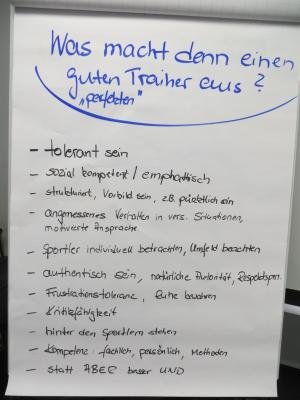 Was macht denn einen
guten Trainer aus?
"perfekten"
- tolerant sein
- sozial kompetent / emphatisch
- strukturiert, Vorbild sein, z.B. pünktlich sein
- angemessenes Verhalten in vers. Situationen,
motivierte Ansprache
- Sportler individuell betrachten, Umfeld beachten
- authentisch sein, natürliche Autorität, Respektsper.
- Frustrationstoleranz, Ruhe bewahren
- Kritikfähigkeit
- hinter den Sportlern stehen
- Kompetenz: fachlich, persönlich, Methoden
- statt ABER besser UND